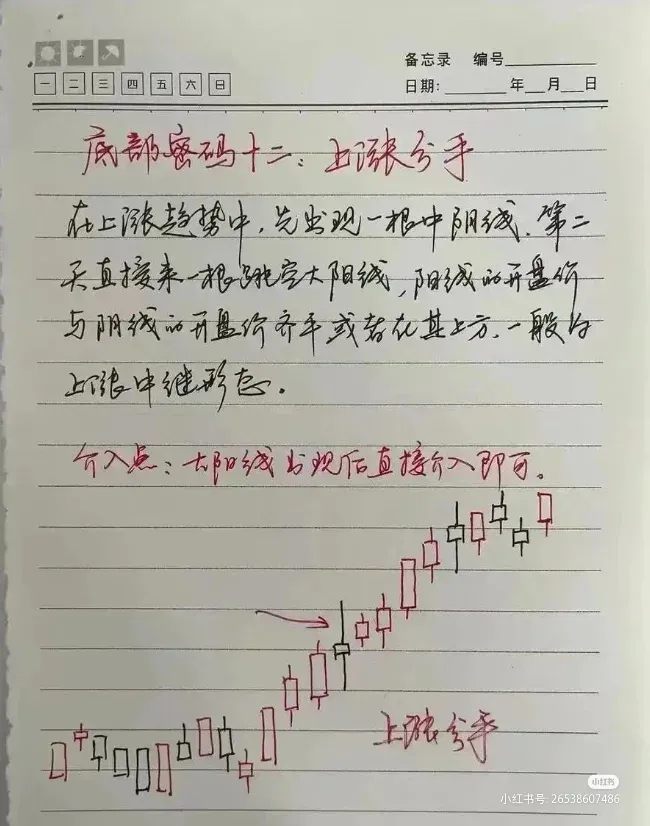 备忘录 编号
一 二 三 四 五 六 日
日期: 年 月 日
底部密码十二：上涨分手
在上涨趋势中，先出现一根中阴线，第二
天直接来一根跳空大阳线，阳线的开盘价
与阴线的开盘价齐平或者在其上方，一般为
上涨中继形态。
介入点：大阳线出现后直接介入即可。
上涨分手
小红书
小红书号: 26538607486